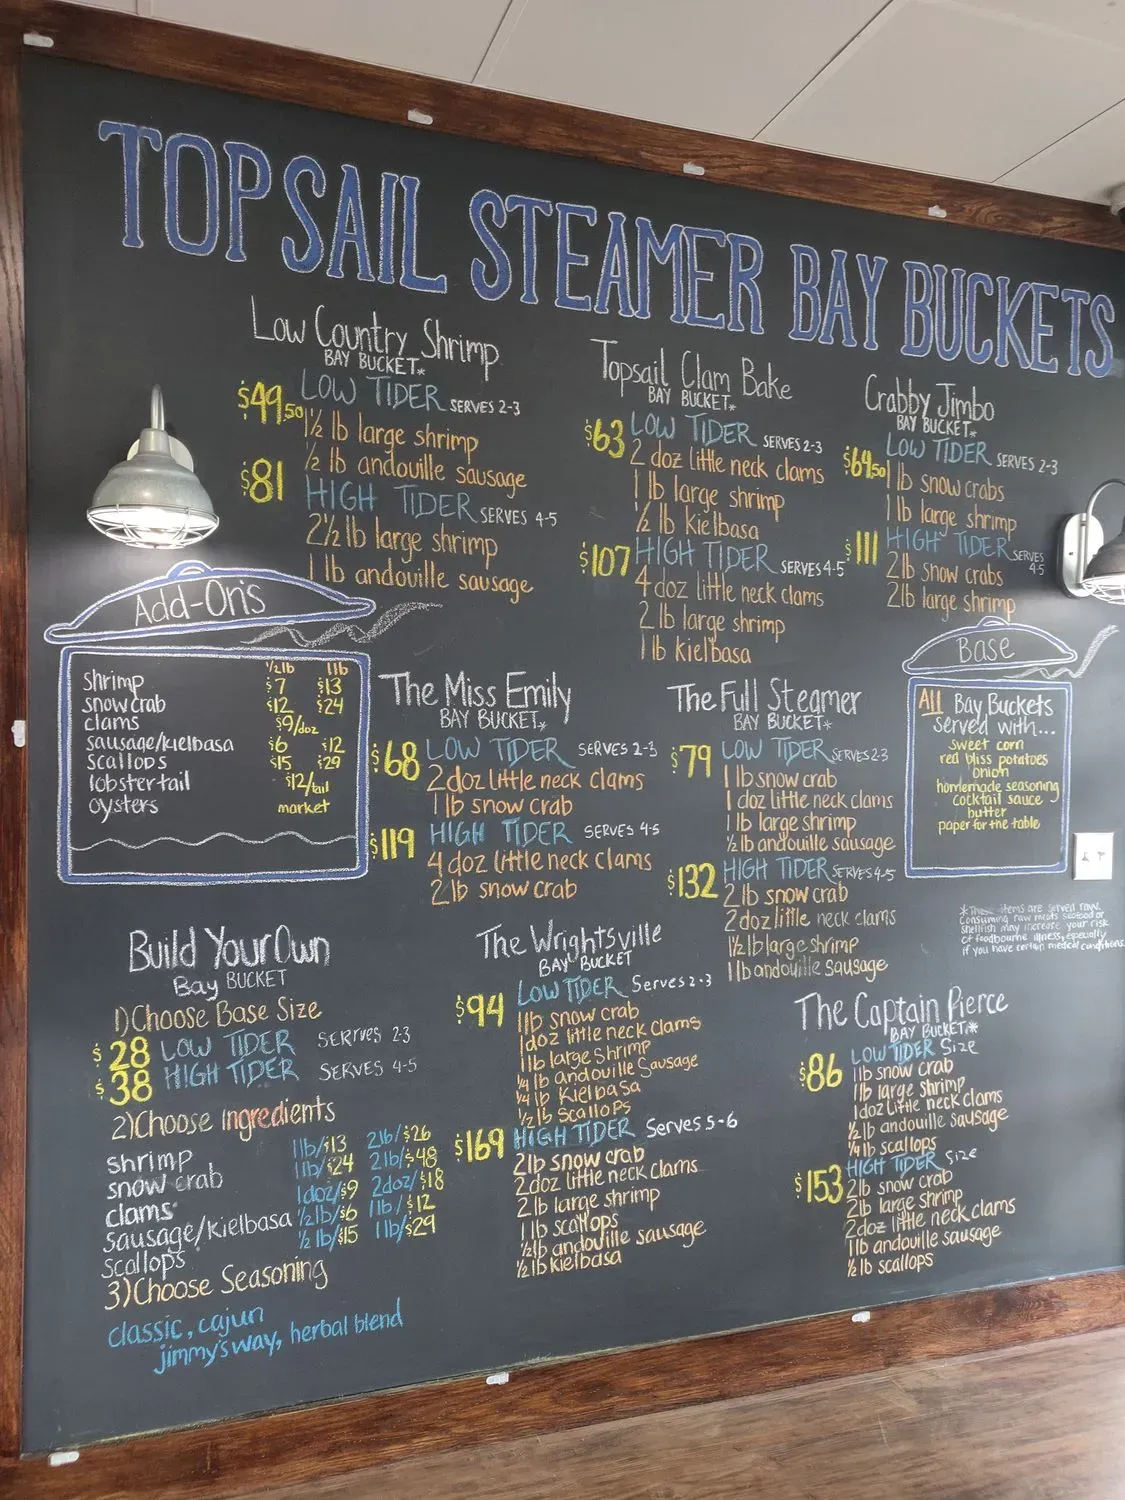 TOPSAIL STEAMER BAY BUCKETS
Low Country Shrimp
BAY BUCKET*
$49.50 LOW TIDER SERVES 2-3
1½ lb large shrimp
½ lb andouille sausage
$81 HIGH TIDER SERVES 4-5
2½ lb large shrimp
1 lb andouille sausage
Topsail Clam Bake
BAY BUCKET*
$63 LOW TIDER SERVES 2-3
2 doz little neck clams
1 lb large shrimp
½ lb kielbasa
$107 HIGH TIDER SERVES 4-5
4 doz little neck clams
2 lb large shrimp
1 lb kielbasa
Crabby Jimbo
BAY BUCKET*
$64.50 LOW TIDER SERVES 2-3
1 lb snow crabs
1 lb large shrimp
$111 HIGH TIDER SERVES 4-5
2 lb snow crabs
2 lb large shrimp
Add-Ons
½ lb 1 lb
shrimp $7 $13
snow crab $12 $24
clams $9/doz
sausage/kielbasa $6 $12
scallops $15 $29
lobster tail $12/tail
oysters market
The Miss Emily
BAY BUCKET*
$68 LOW TIDER SERVES 2-3
2 doz little neck clams
1 lb snow crab
$119 HIGH TIDER SERVES 4-5
4 doz little neck clams
2 lb snow crab
The Full Steamer
BAY BUCKET*
$79 LOW TIDER SERVES 2-3
1 lb snow crab
1 doz little neck clams
1 lb large shrimp
½ lb andouille sausage
$132 HIGH TIDER SERVES 4-5
2 lb snow crab
2 doz little neck clams
1½ lb large shrimp
1 lb andouille sausage
Base
ALL Bay Buckets
served with...
sweet corn
red bliss potatoes
onion
homemade seasoning
cocktail sauce
butter
paper for the table
*These items are served raw.
Consuming raw meats seafood or
shellfish may increase your risk
of foodbourne illness, especially
if you have certain medical conditions
Build Your Own
Bay BUCKET
1) Choose Base Size
$28 LOW TIDER SERVES 2-3
$38 HIGH TIDER SERVES 4-5
2) Choose Ingredients
shrimp 1lb/$13 2lb/$26
snow crab 1lb/$24 2lb/$48
clams 1doz/$9 2doz/$18
sausage/kielbasa ½lb/$6 1lb/$12
scallops ½lb/$15 1lb/$29
3) Choose Seasoning
classic, cajun
jimmy's way, herbal blend
The Wrightsville
BAY BUCKET
$94 LOW TIDER Serves 2-3
1lb snow crab
1doz little neck clams
1lb large shrimp
¼ lb andouille sausage
¼ lb Kielbasa
½ lb scallops
$169 HIGH TIDER Serves 5-6
2lb snow crab
2doz little neck clams
2 lb large shrimp
1 lb scallops
½lb andouille sausage
½ lb kielbasa
The Captain Pierce
BAY BUCKET*
$86 LOW TIDER Size
1lb snow crab
1lb large shrimp
1doz little neck clams
½ lb andouille sausage
¼ lb scallops
$153 HIGH TIDER Size
2lb snow crab
2lb large shrimp
2doz little neck clams
1lb andouille sausage
½ lb scallops